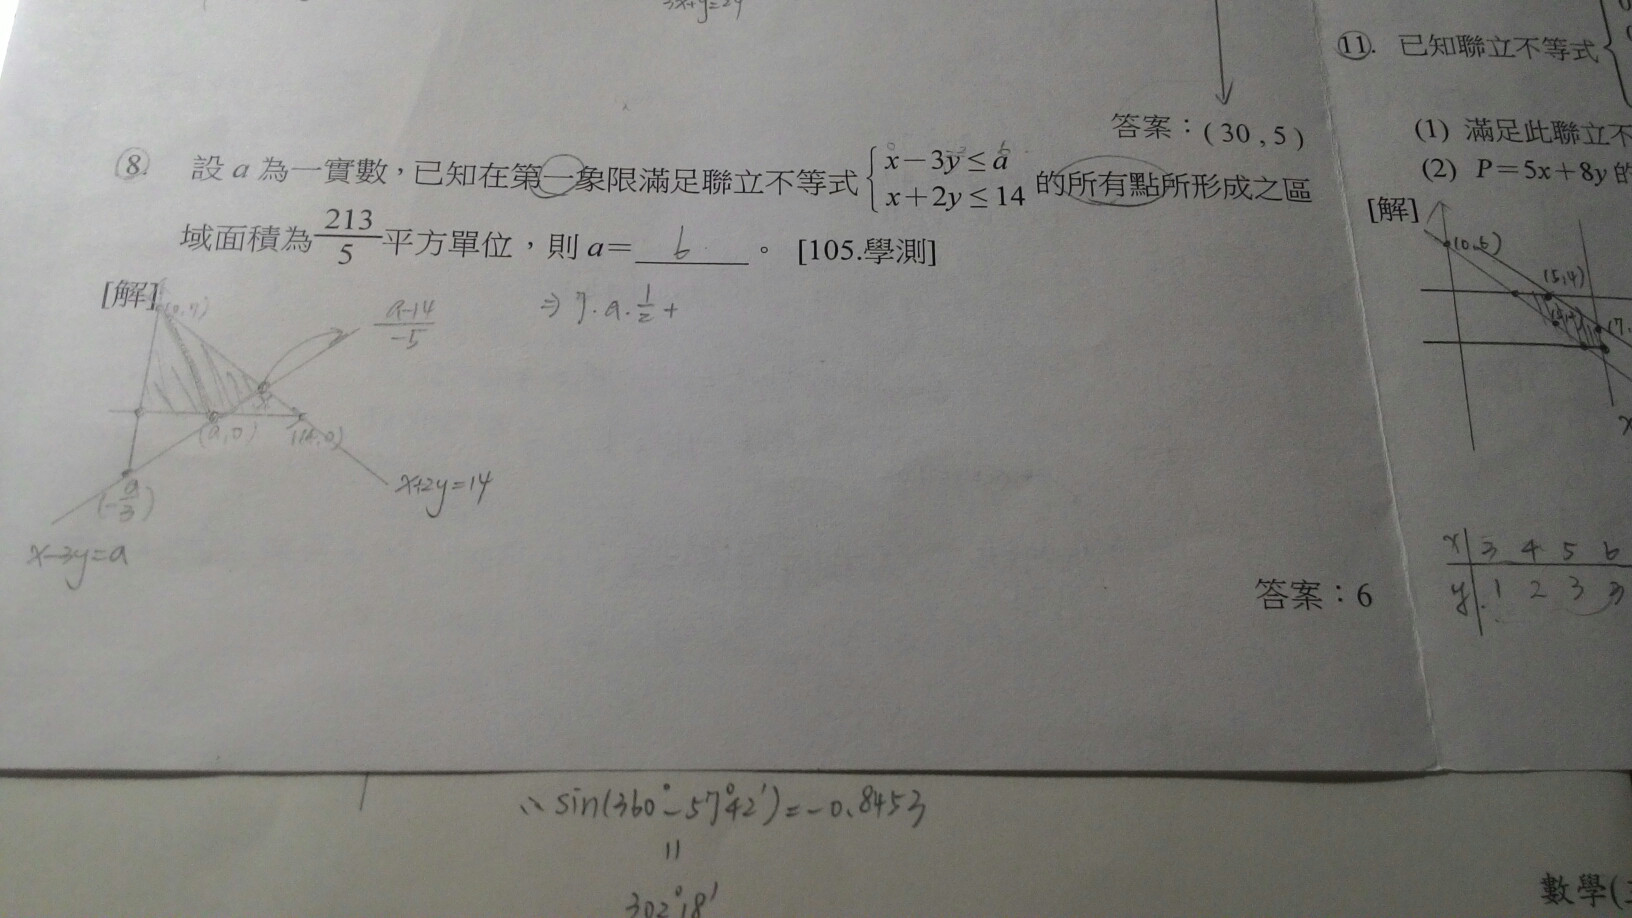 3x+y=24
答案：(30 , 5)
⑧. 設 a 為一實數，已知在第一象限滿足聯立不等式 { x－3y ≤ a
x＋2y ≤ 14 的所有點所形成之區
域面積為 213/5 平方單位，則 a＝ 6 。 [105.學測]
[解]
(0,7)
(a,0)
(14,0)
(-a/3)
x-3y=a
x+2y=14
a-14/-5
⇒ 7·a·1/2 +
答案：6
⑪. 已知聯立不等式
(1) 滿足此聯立不
(2) P＝5x＋8y 的
[解]
(0,6)
(5,4)
(7,
x 3 4 5 6
y 1 2 3 3
∴ sin(360°-57°42')=-0.8453
=
302°18'
數學(